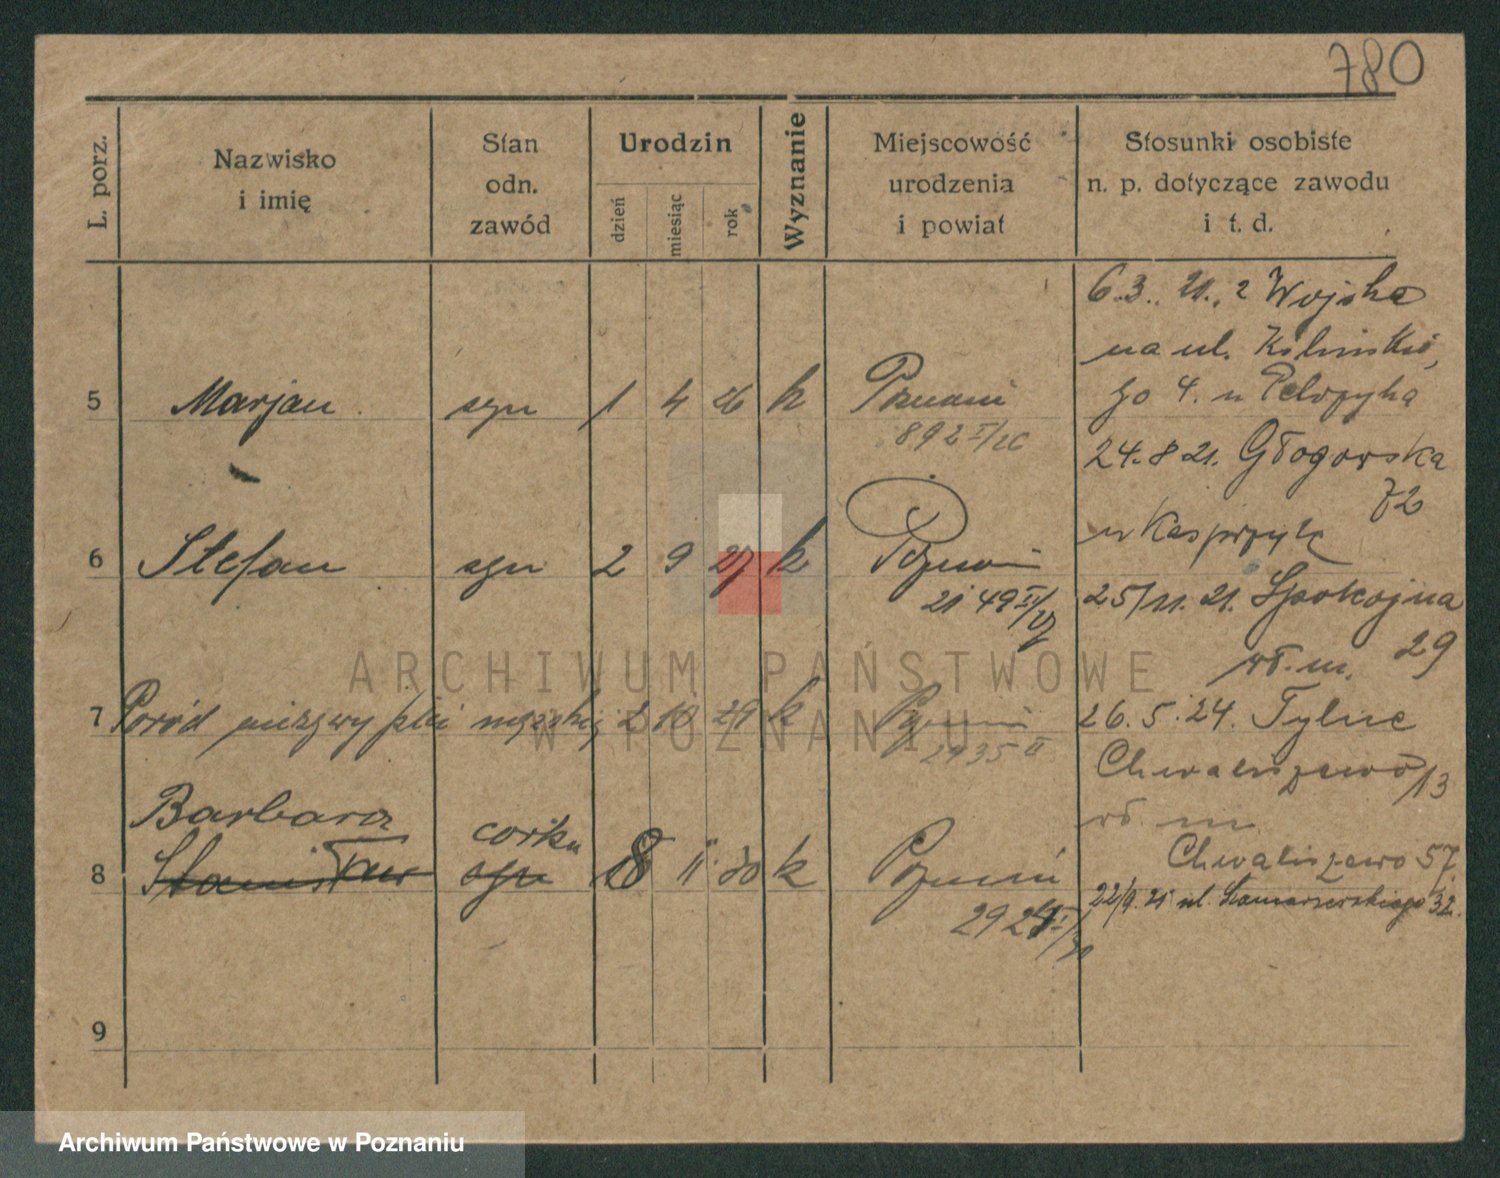 780
L. porz.
Nazwisko
i imię
Stan
odn.
zawód
Urodzin
dzień
miesiąc
rok
Wyznanie
Miejscowość
urodzenia
i powiat
Stosunki osobiste
n. p. dotyczące zawodu
i t. d.
5 Marjan syn 1 4 26 k Poznań
892 I/26
6 Stefan syn 2 9 27 k Poznań
2149
7 Poród nieżywy płci męskiej 2 10 29 k Poznań
2935 II
Barbara córka
8 Stanisław syn 18 11 30 k Poznań
2924
9
6.3. 21. z Wojska
na ul. Kilińskie,
go 4. u
24.8 21. Głogowska
72
u Kasprzyk
25/11. 21. Spokojna
29
wł. m.
26.5.24. Tylne
Chwaliszewo 13
wł. m.
Chwaliszewo 57.
22/9. ul. 32.
ARCHIWUM PAŃSTWOWE
W POZNANIU
Archiwum Państwowe w Poznaniu